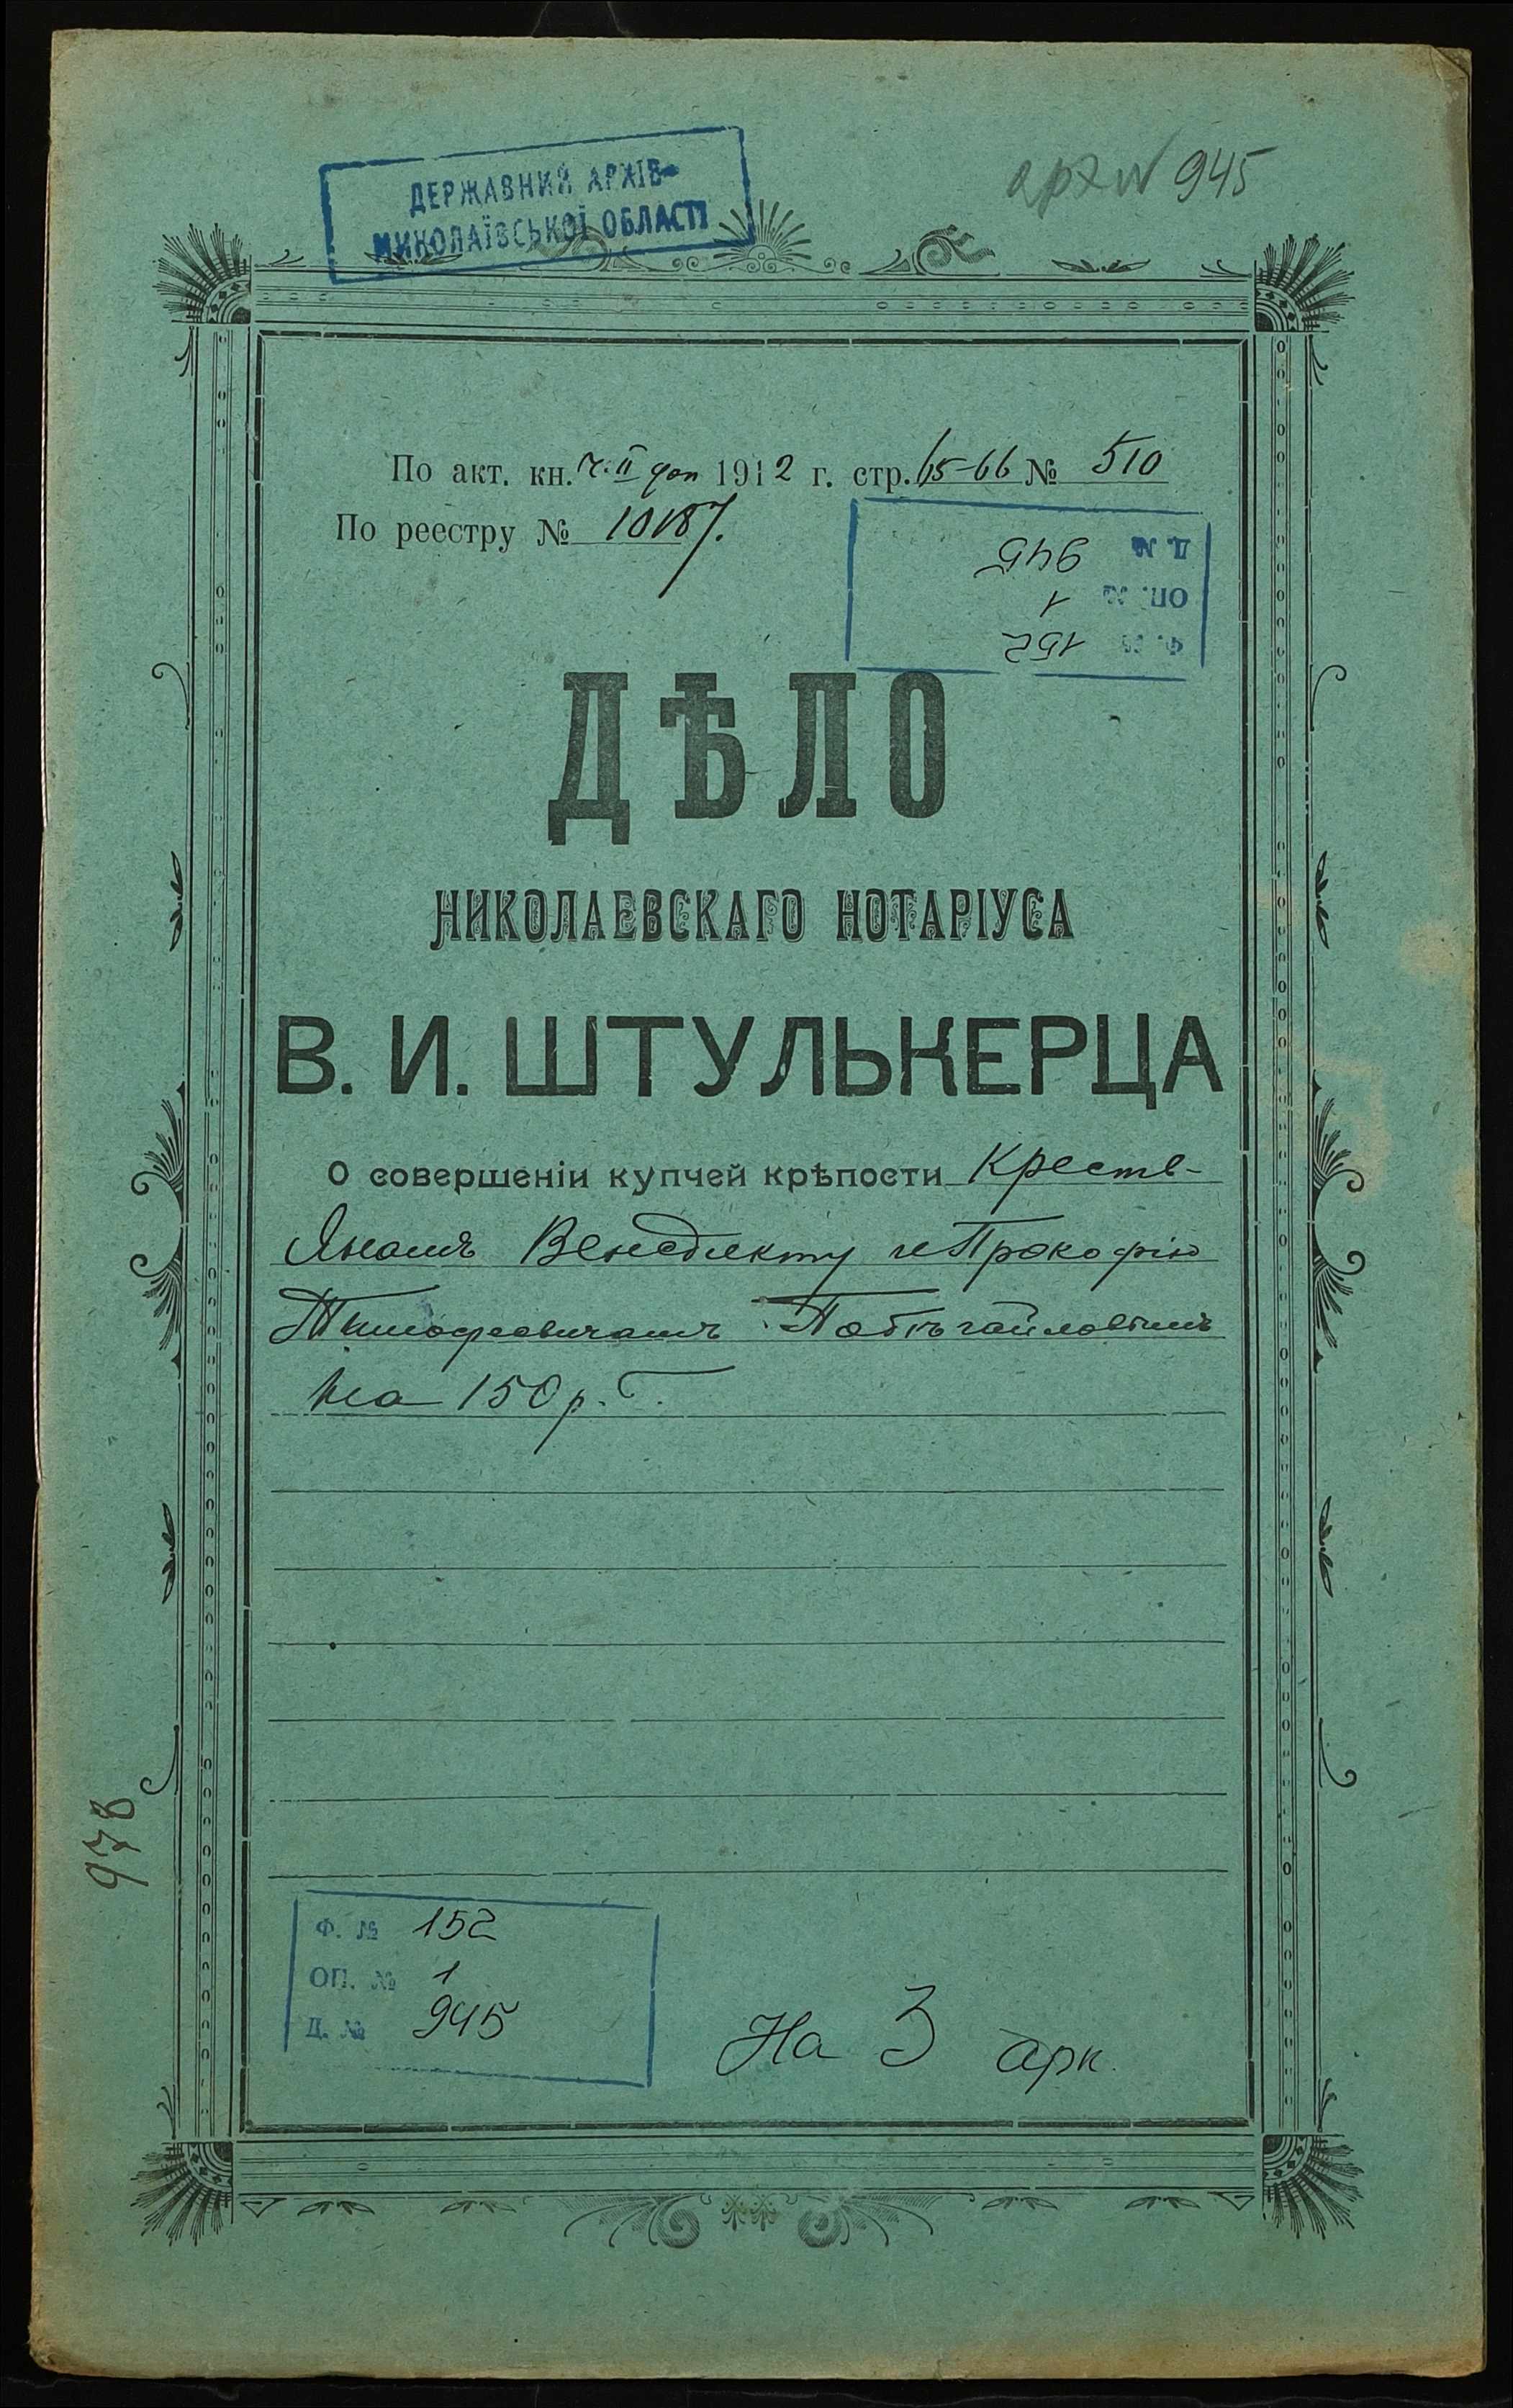 ДЕРЖАВНИЙ АРХІВ
МИКОЛАЇВСЬКОЇ ОБЛАСТІ
арх № 945
По акт. кн. ч. II доп 1912 г. стр. 65-66 № 510
По реестру № 10187.
Д. № 945
ОП. № 1
Ф. № 152
ДѢЛО
НИКОЛАЕВСКАГО НОТАРІУСА
В. И. ШТУЛЬКЕРЦА
О совершеніи купчей крѣпости Крестья-
янамъ Венедикту и Прокофію
Тимофеевичамъ
на 150 р.
978
Ф. № 152
ОП. № 1
Д. № 945
На 3 арк.